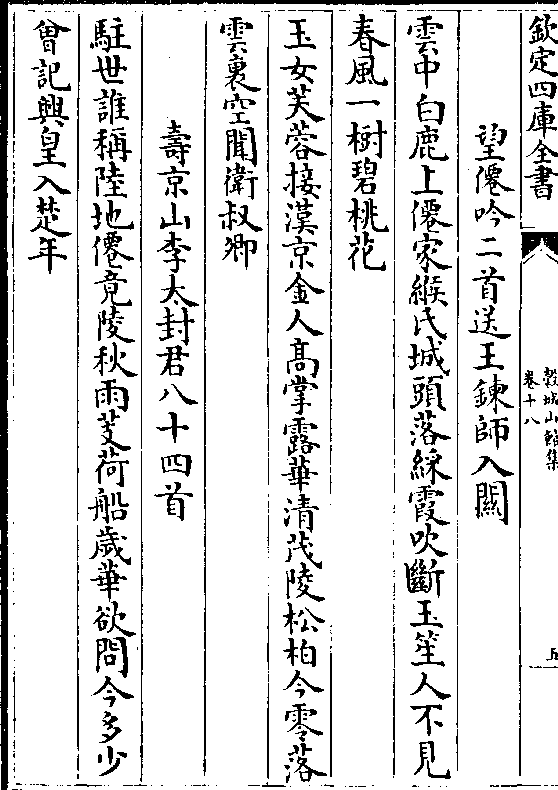 欽定四庫全書
穀城山館集
卷十八
五
望僊吟二首送王鍊師入關
雲中白鹿上僊家緱氏城頭落綵霞吹斷玉笙人不見
春風一樹碧桃花
玉女芙蓉接漢京金人高掌露華清茂陵松柏今零落
雲裏空聞衛叔卿
壽京山李太封君八十四首
駐世誰稱陸地僊竟陵秋雨芰荷船歲華欲問今多少
曾記興皇入楚年